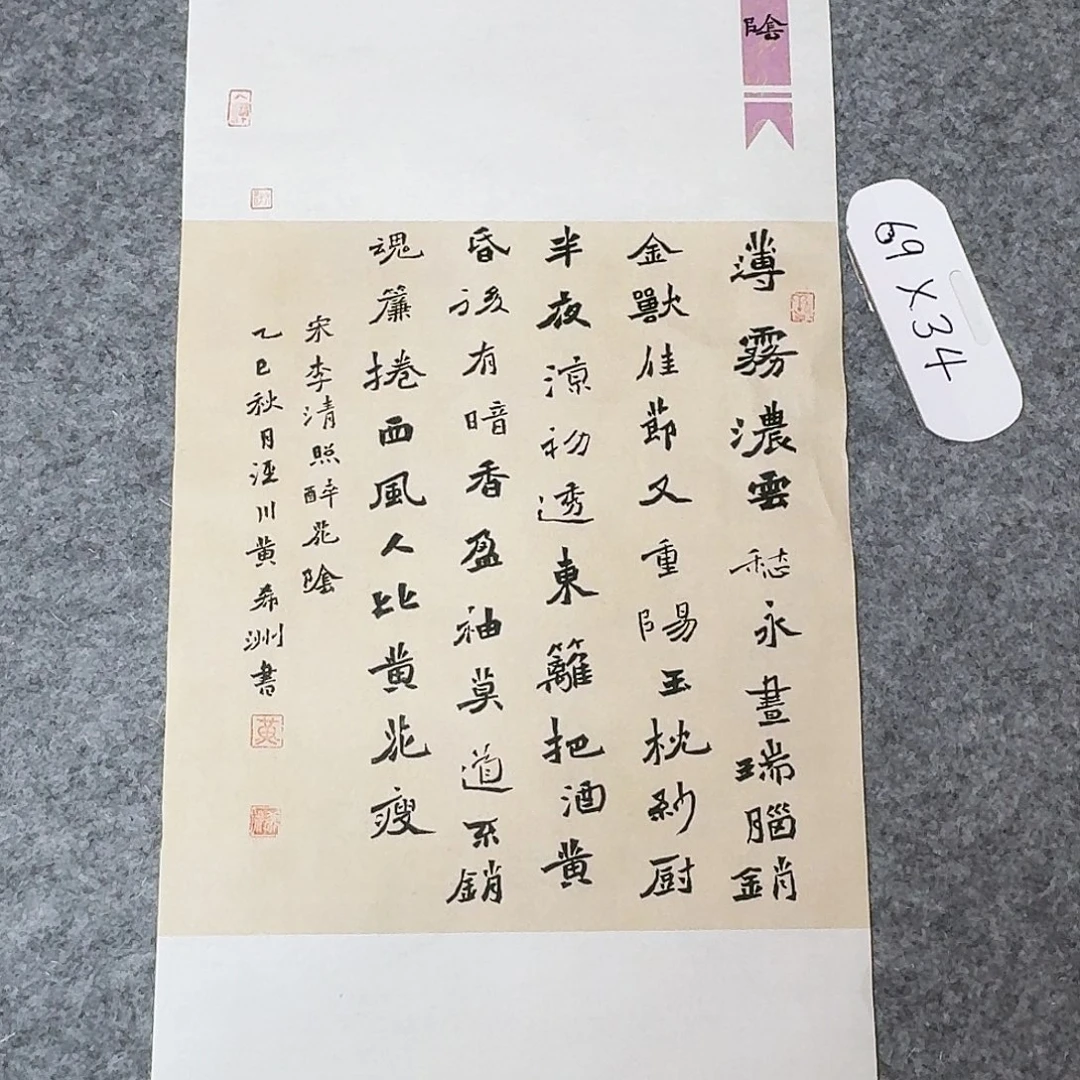 陰
薄霧濃雲愁永晝瑞腦銷
金獸佳節又重陽玉枕紗厨
半夜涼初透東籬把酒黄
昏後有暗香盈袖莫道不銷
魂簾捲西風人比黄花瘦
宋李清照醉花陰
乙巳秋月涇川黄希洲書
黄
69X34